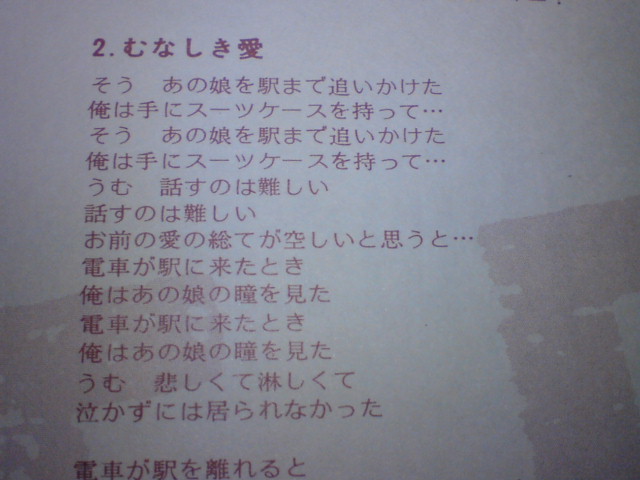 2.むなしき愛
そう　あの娘を駅まで追いかけた
俺は手にスーツケースを持って…
そう　あの娘を駅まで追いかけた
俺は手にスーツケースを持って…
うむ　話すのは難しい
話すのは難しい
お前の愛の総てが空しいと思うと…
電車が駅に来たとき
俺はあの娘の瞳を見た
電車が駅に来たとき
俺はあの娘の瞳を見た
うむ　悲しくて淋しくて
泣かずには居られなかった
電車が駅を離れると